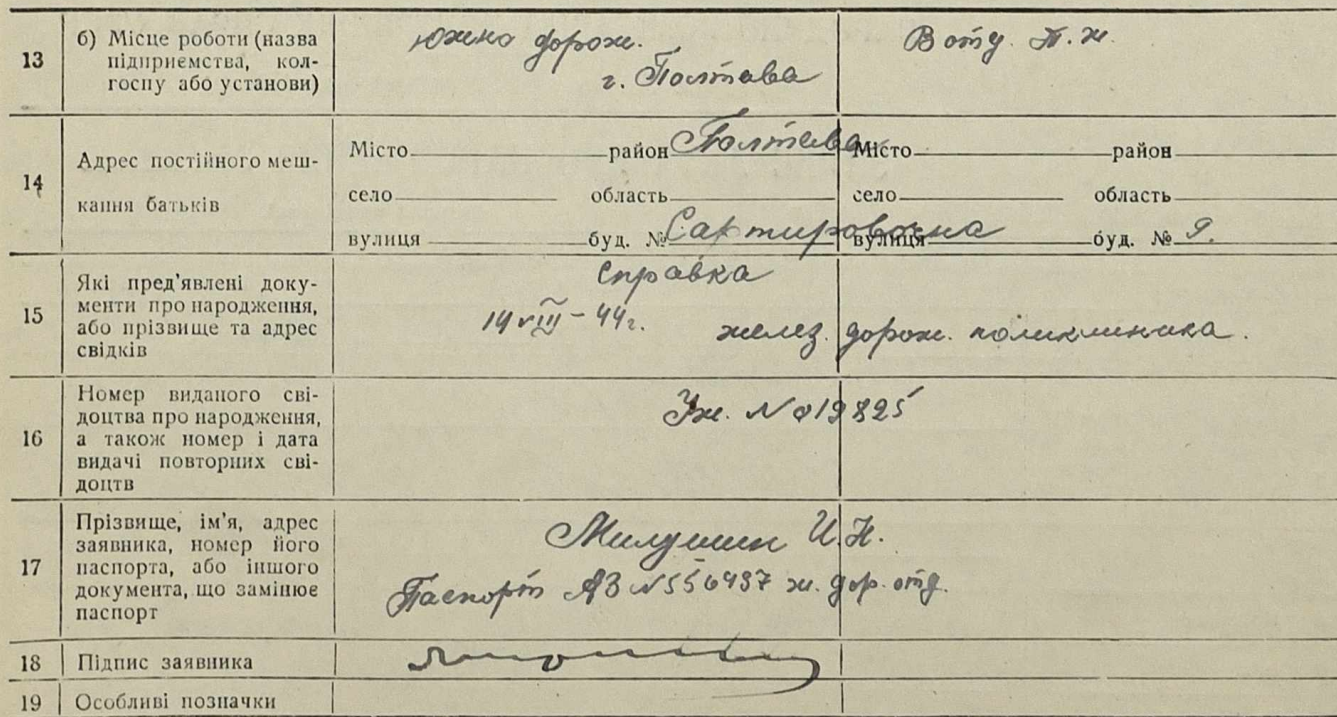 13 б) Місце роботи (назва
підприємства, кол-
госпу або установи)
южно дорож.
г. Полтава
В отд. П. ж.
14 Адрес постійного меш-
кання батьків
Місто район Полтава Місто район
село область село область
вулиця буд. № Сортировочна вулиця буд. № 9.
15 Які пред'явлені доку-
менти про народження,
або прізвище та адрес
свідків
Справка
14 VIII - 44 г. желез. дорож. поликлиника.
16 Номер виданого сві-
доцтва про народження,
а також номер і дата
видачі повторних сві-
доцтв
Уж. № 019825
17 Прізвище, ім'я, адрес
заявника, номер його
паспорта, або іншого
документа, що замінює
паспорт
Милушин И. Н.
Паспорт АЗ № 556497 ж. дор. отд.
18 Підпис заявника
19 Особливі позначки